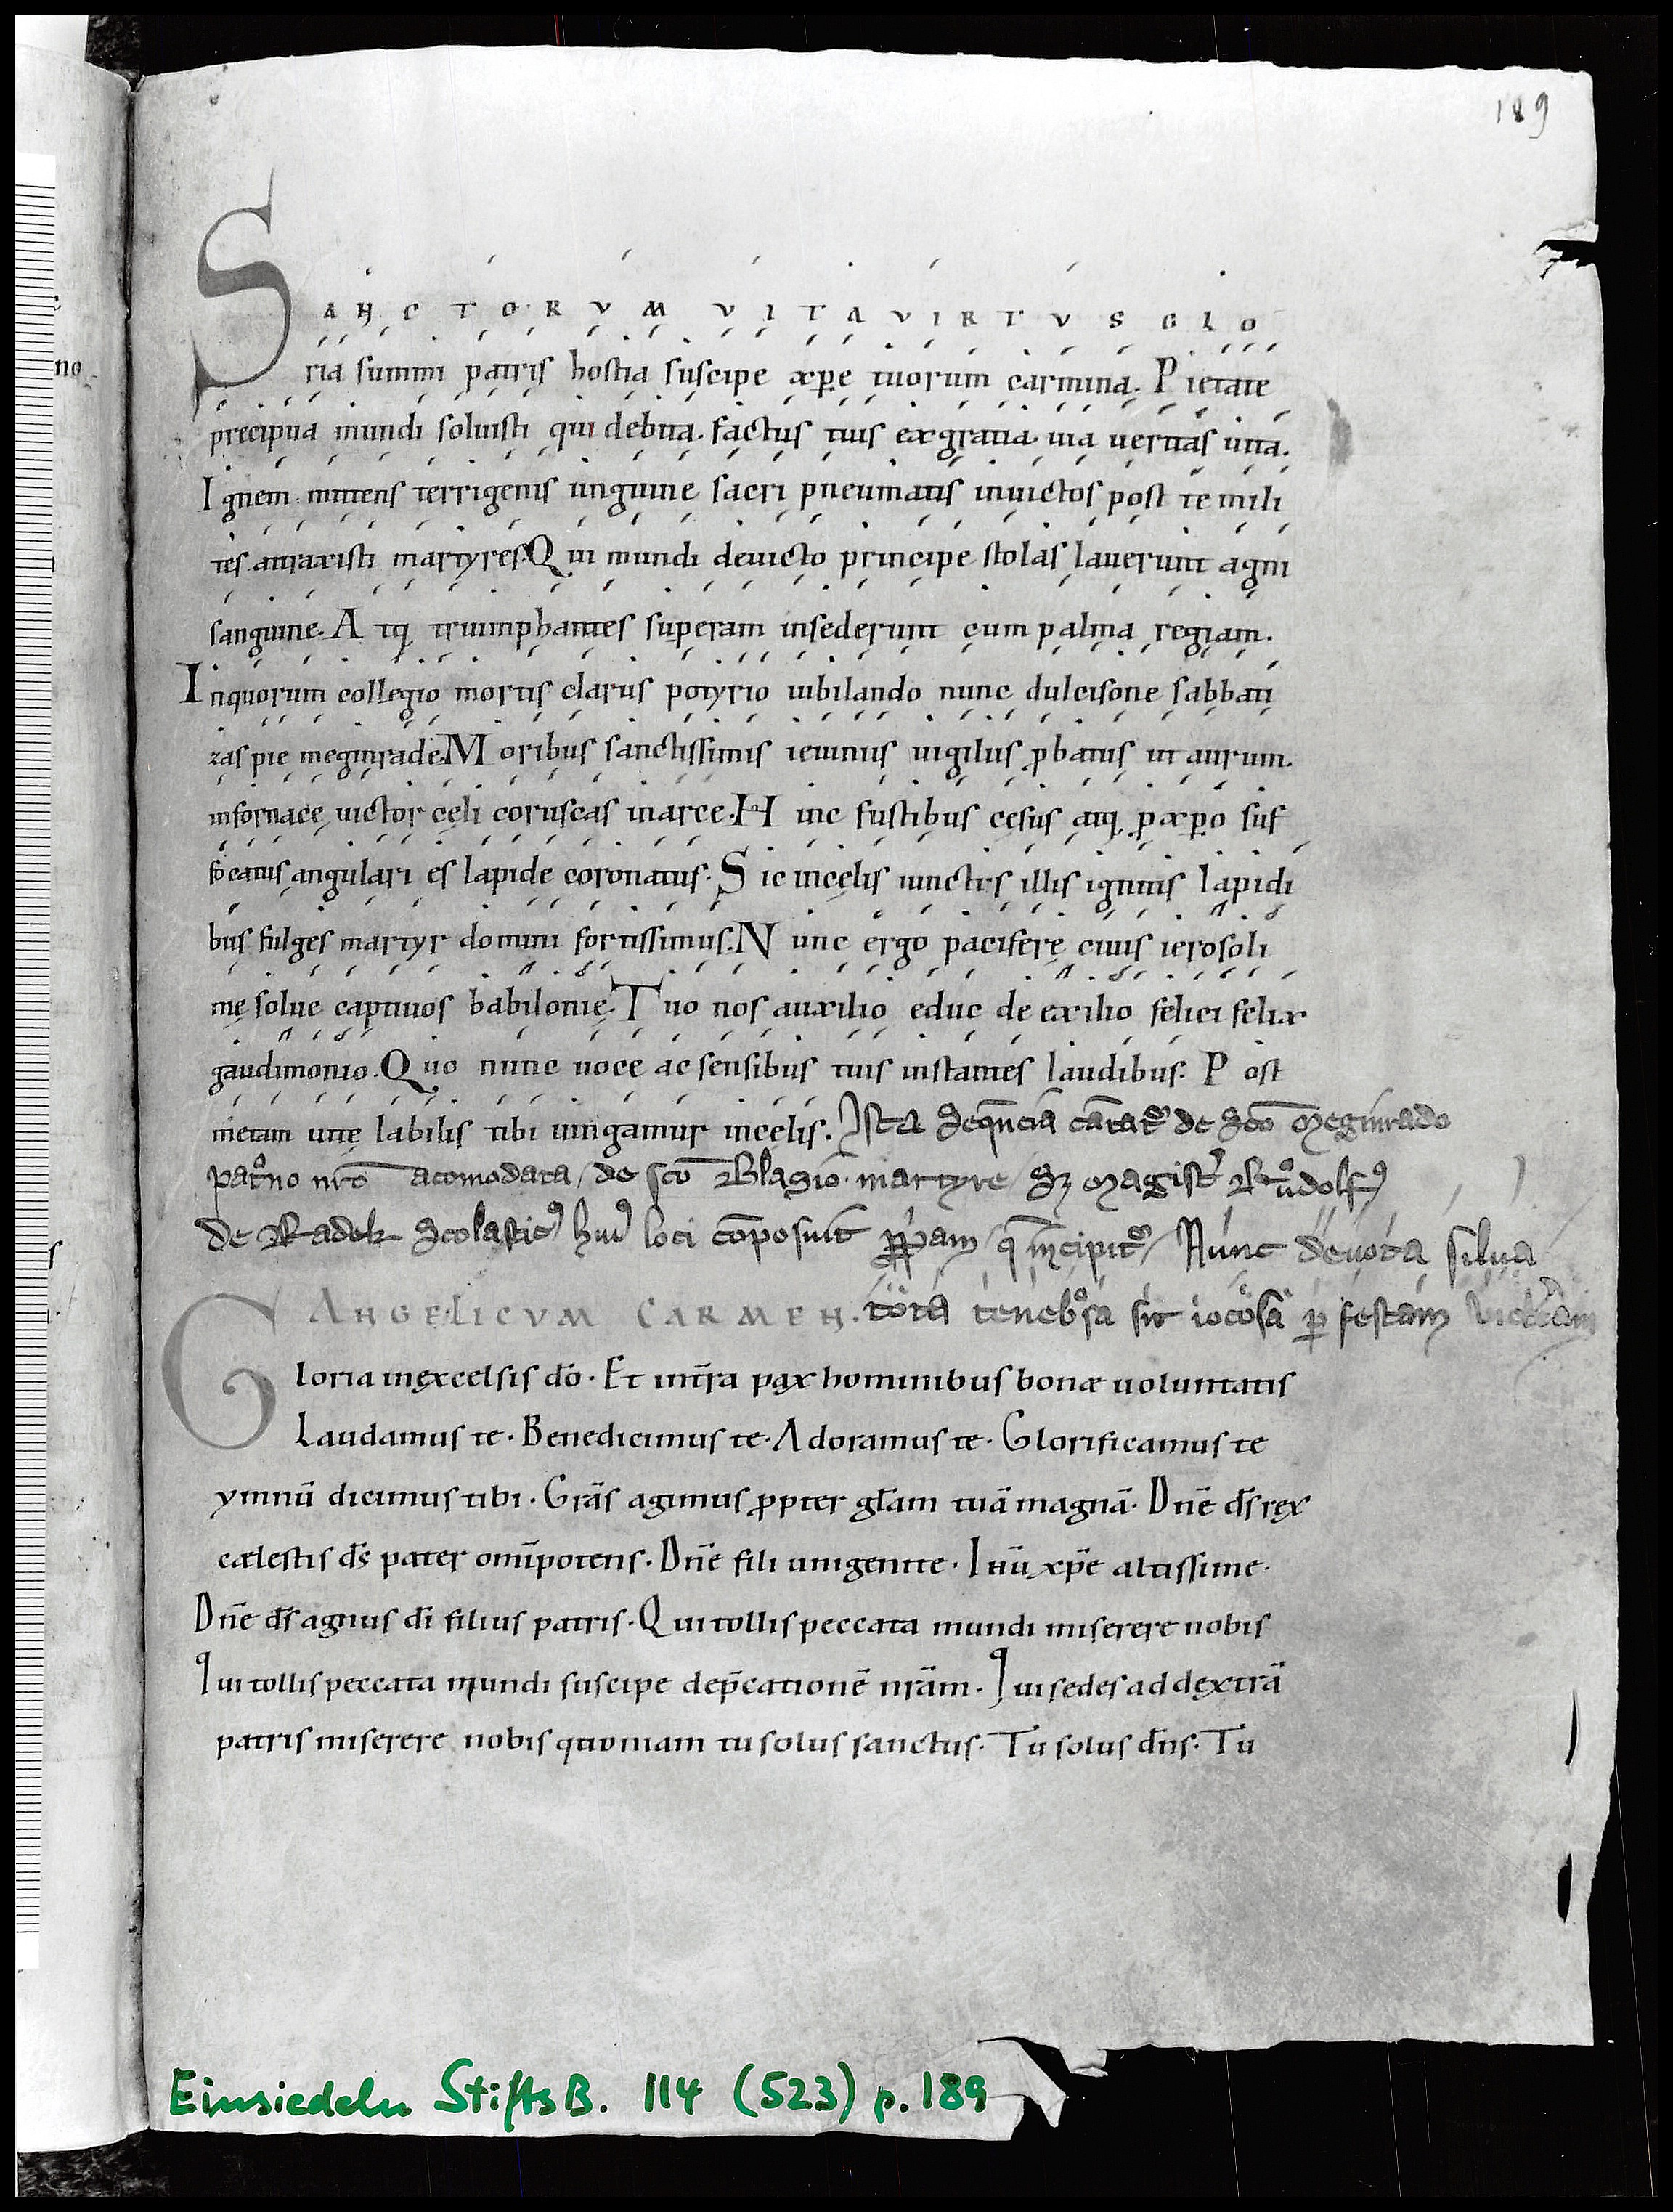 189
SANCTORVM VITA VIRTVS GLO
ria summi patris hostia suscipe xp̄e tuorum carmina. Pietate
precipua mundi soluisti qui debita. factus tuis ex gratia. uia ueritas uita.
Ignem mittens terrigenis unguine sacri pneumatis inuictos post te mili
tes attraxisti martyres. Qui mundi deuicto principe stolas lauerunt agni
sanguine. Atq; triumphantes superam insederunt cum palma regiam.
Inquorum collegio mortis clarus potyrio iubilando nunc dulcisone sabbati
zas pie meginrade. Moribus sanctissimis ieiuniis uigiliis ꝓbatus ut aurum.
infornace uictor cęli coruscas inarce. Hinc fustibus cęsus atq; ꝓ xp̄o suf
focatus angulari es lapide coronatus. Sic incęlis iunctis illis ignitis lapidi
bus fulges martyr domini fortissimus. Nunc ergo pacifere ciuis ierosoli
mę solue captiuos babilonię. Tuo nos auxilio educ de exilio felici felix
gaudimonio. Quo nunc uoce ac sensibus tuis instantes laudibus. Post
metam uitę labilis tibi iungamur incelis. Ista sequēcia cātat᷑ de sc̄o Meginrado
pat°no nr̄o acomodata / de sc̄o Blasio martyre / sꝫ Magist̓ Růdolfꝰ
de Radek scolasticꝰ huiꝰ loci cōposuit ꝓpͥam / q̄ incipit᷑ / Nunc deuota silua
ANGELICVM CARMEN. tota teneb°sa sit iocosa ꝑ festam
Gloria inęxcelsis dō. Et int̄ra pax hominibus bonæ uoluntatis
Laudamus te. Benedicimus te. Adoramus te. Glorificamus te
ymnū dicimus tibi. Grās agimus ꝓpter gl̄am tuā magnā. Dn̄e ds̄ rex
cælestis ds̄ pater omīpotens. Dn̄e fili unigenite. Ihū xp̄e altissime.
Dn̄e ds̄ agnus dī filius patris. Qui tollis peccata mundi miserere nobis
Qui tollis peccata mundi suscipe dep̄cationē nr̄am. Qui sedes ad dęxtrā
patris miserere nobis quoniam tu solus sanctus. Tu solus dn̄s. Tu
Einsiedeln StiftsB. 114 (523) p. 189